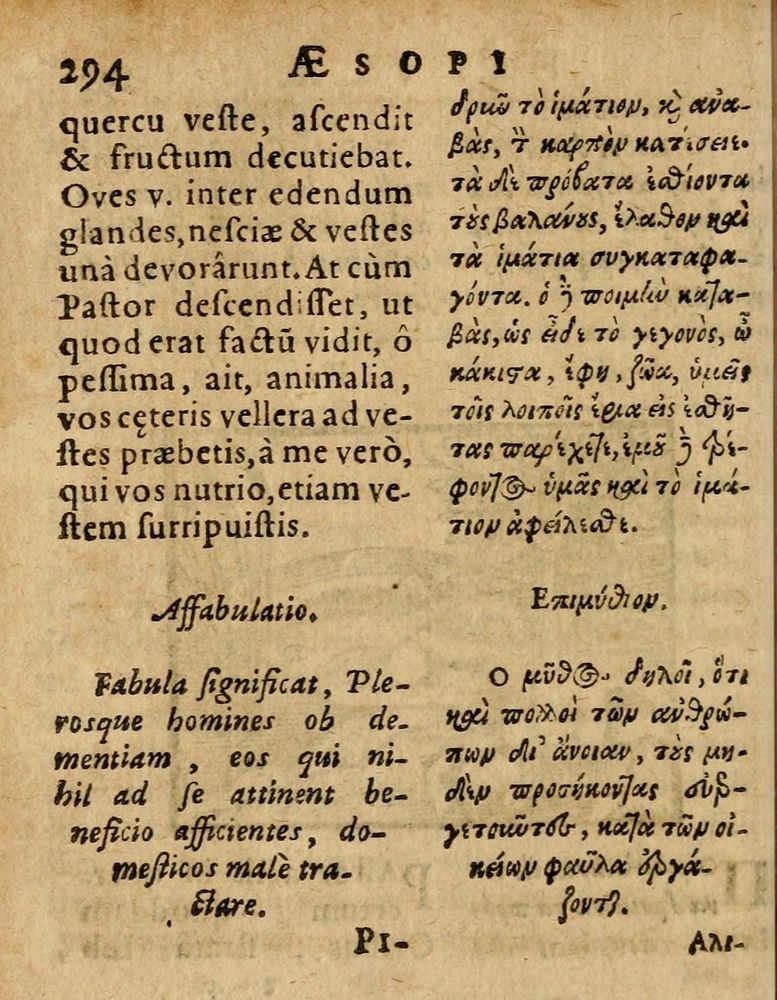 294
ÆSOPI
quercu veſte, aſcendit
& fructum decutiebat.
Oves v. inter edendum
glandes, neſciæ & veſtes
unà devorârunt. At cùm
Paſtor deſcendiſſet, ut
quod erat factū vidit, ô
peſſima, ait, animalia,
vos cęteris vellera ad ve-
ſtes præbetis, à me verò,
qui vos nutrio, etiam ve-
ſtem ſurripuiſtis.
Affabulatio.
Fabula ſignificat, Ple-
rosque homines ob de-
mentiam, eos qui ni-
hil ad ſe attinent be-
neficio afficientes, do-
meſticos malè tra-
ctare.
PI-
δρυῦ τὸ ἱμάτιον, καὶ ἀνα-
βὰς, τ καρπὸν κατέσειε.
τὰ δὲ πρόβατα ἐσθίοντα
τοὺς βαλάνους, ἔλαθον καὶ
τὰ ἱμάτια συγκαταφα-
γόντα. ὁ δὲ ποιμὴν κατα-
βὰς, ὡς εἶδε τὸ γεγονὸς, ὦ
κάκιστα, ἔφη, ζῶα, ὑμεῖς
τοῖς λοιποῖς ἔρια εἰς ἐσθῆ-
τας παρέχετε, ἐμοῦ δὲ τρέ-
φοντος ὑμᾶς καὶ τὸ ἱμά-
τιον ἀφείλεσθε.
Επιμύθιον.
Ο μῦθος δηλοῖ, ὅτι
καὶ πολλοὶ τῶν ἀνθρώ-
πων δι' ἄνοιαν, τοὺς μη-
δὲν προσήκοντας εὐερ-
γετοῦντες, κατὰ τῶν οἰ-
κείων φαῦλα ἐργά-
ζονται.
Αλι-